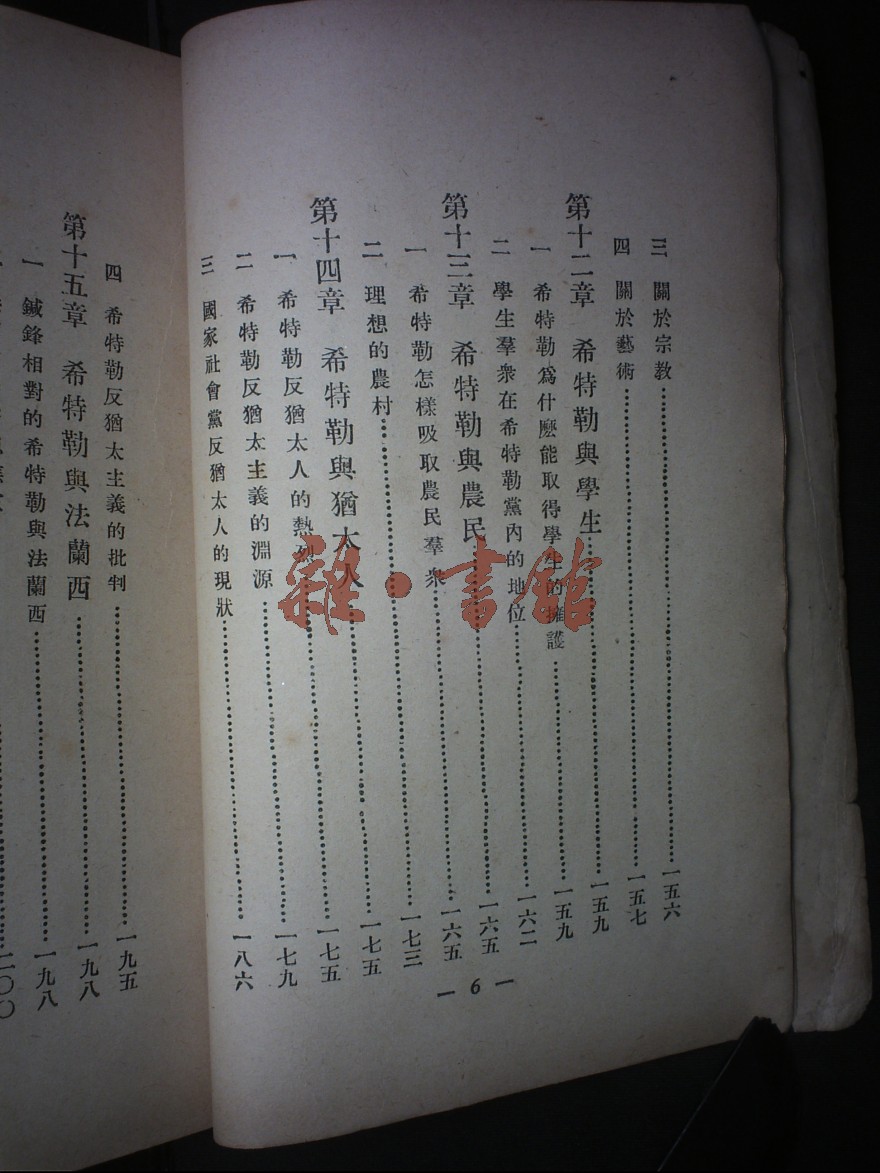 三 關於宗教……一五六
四 關於藝術……一五七
第十二章 希特勒與學生……一五九
一 希特勒爲什麽能取得學生的擁護……一五九
二 學生羣衆在希特勒黨內的地位……一六二
第十三章 希特勒與農民……一六五
一 希特勒怎樣吸取農民羣衆……一六五
二 理想的農村……一七三
第十四章 希特勒與猶太人……一七五
一 希特勒反猶太人的熱烈……一七五
二 希特勒反猶太主義的淵源……一七九
三 國家社會黨反猶太人的現狀……一八六
— 6 —
四 希特勒反猶太主義的批判……一九五
第十五章 希特勒與法蘭西……一九八
一 鍼鋒相對的希特勒與法蘭西……一九八
二〇〇
雜·書館